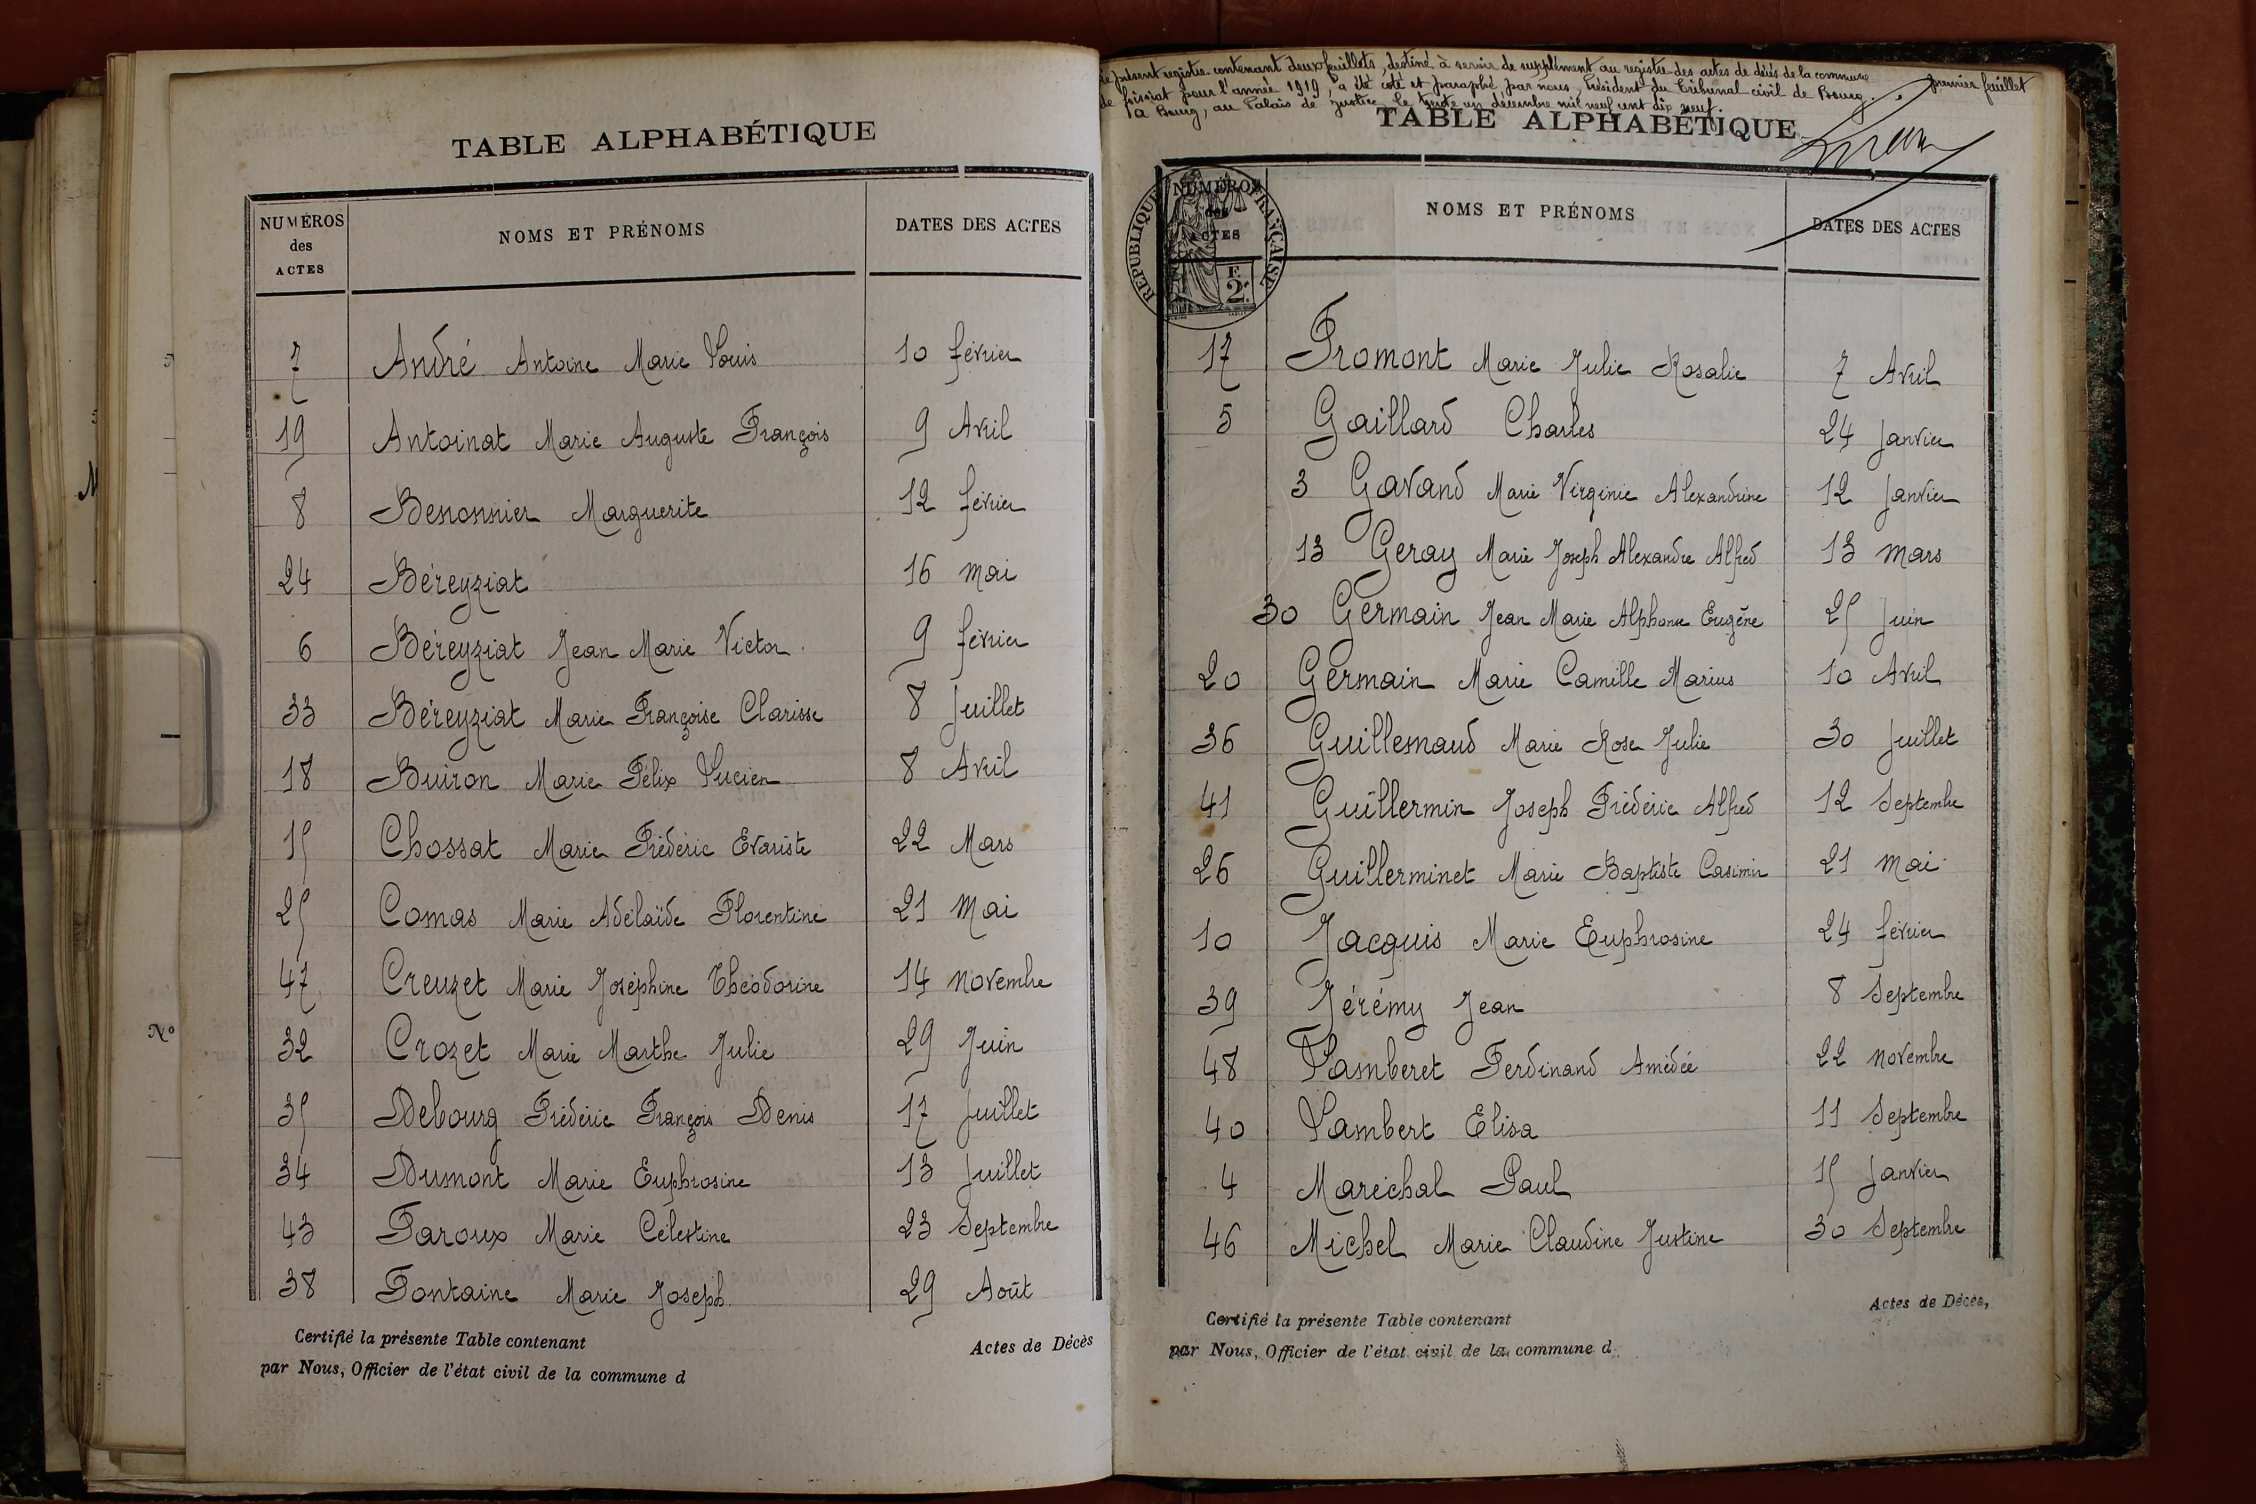 TABLE ALPHABÉTIQUE
NUMÉROS des ACTES NOMS ET PRÉNOMS DATES DES ACTES
7 André Antoine Marie Louis 10 février
19 Antoinat Marie Auguste François 9 Avril
8 Benonnier Marguerite 12 février
24 Béreyziat 16 mai
6 Béreyziat Jean Marie Victor. 9 février
33 Béreyziat Marie Françoise Clarisse 8 Juillet
18 Buiron Marie Félix Lucien 8 Avril
15 Chossat Marie Frédéric Evariste 22 Mars
25 Comas Marie Adélaïde Florentine 21 Mai
47 Creuzet Marie Joséphine Théodorine 14 novembre
32 Crozet Marie Marthe Julie 29 Juin
35 Debourg Frédéric François Denis 17 Juillet
34 Dumont Marie Euphrosine 13 Juillet
43 Faroux Marie Célestine 23 Septembre
38 Fontaine Marie Joseph 29 Août
Certifié la présente Table contenant Actes de Décès
par Nous, Officier de l'état civil de la commune d
N°
Le présent registre contenant deux feuillets, destiné à servir de supplément au registre des actes de décès de la commune
de Foissiat pour l'année 1919, a été coté et paraphé par nous, Président du Tribunal civil de Bourg.
A Bourg, au Palais de Justice, le trente un décembre mil neuf cent dix neuf.
premier feuillet
TABLE ALPHABÉTIQUE
RÉPUBLIQUE FRANÇAISE
2 F.
NUMÉROS des ACTES NOMS ET PRÉNOMS DATES DES ACTES
17 Fromont Marie Julie Rosalie 7 Avril
5 Gaillard Charles 24 Janvier
3 Gavand Marie Virginie Alexandrine 12 Janvier
13 Geray Marie Joseph Alexandre Alfred 13 mars
30 Germain Jean Marie Alphonse Eugène 25 Juin
20 Germain Marie Camille Marius 10 Avril
36 Guillemaud Marie Rose Julie 30 Juillet
41 Guillermin Joseph Frédéric Alfred 12 Septembre
26 Guillerminet Marie Baptiste Casimir 21 mai
10 Jacquis Marie Euphrosine 24 février
39 Jérémy Jean 8 Septembre
48 Lamberet Ferdinand Amédée 22 novembre
40 Lambert Elisa 11 Septembre
4 Maréchal Paul 15 Janvier
46 Michel Marie Claudine Justine 30 Septembre
Certifié la présente Table contenant Actes de Décès,
par Nous, Officier de l'état civil de la commune d